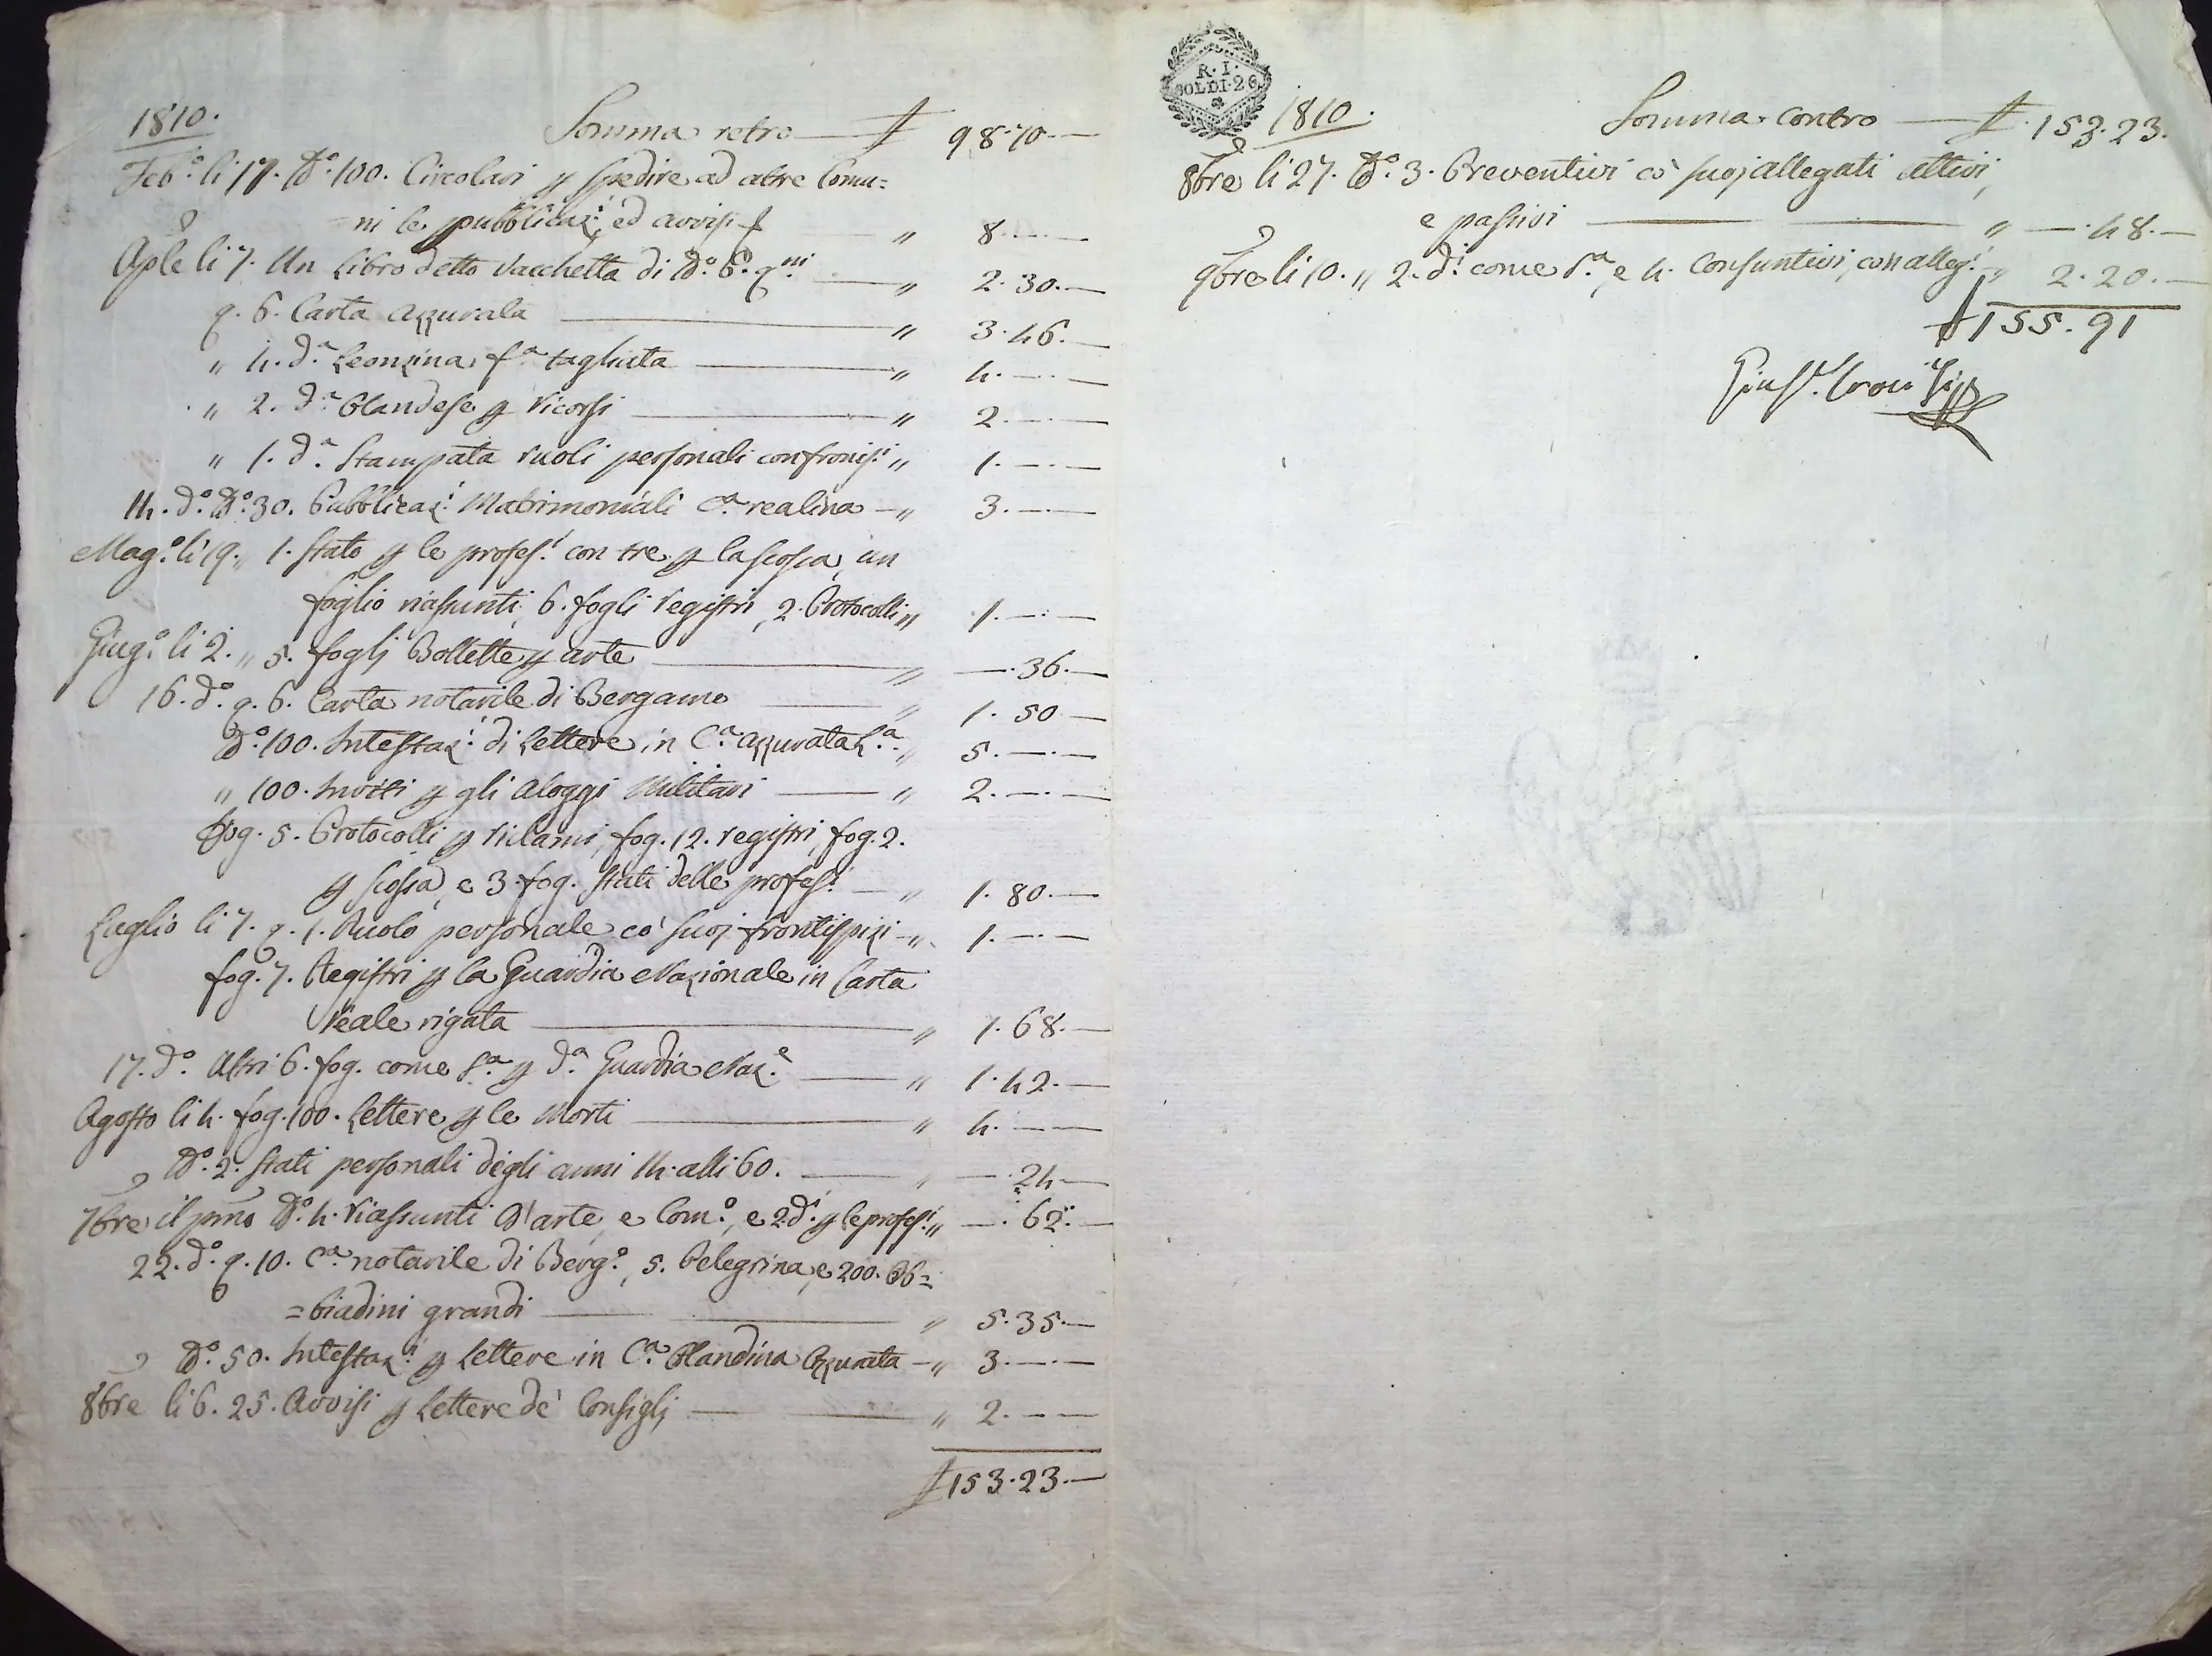 1810.
Somma retro £ 98.70.—
Feb.º li 17. Nº. 100. Circolari p spedire ad altre Comu=
=ni le pubblicaz.i ed avvisi " 8.—.—
Aple li 7. Un Libro detto Vacchetta di Nº. 6. q.ni " 2.30.—
q. 6. Carta azzurata " 3.46.—
" 4. d.ª Leonzina f.ª tagliata " 4.—.—
" 2. d.ª Olandese p ricorsi " 2.—.—
" 1. d.ª Stampata ruoli personali con fronisp.i " 1.—.—
14. dº. Nº. 30. Pubblicaz.i Matrimoniali C.ª realina — " 3.—.—
Mag.º li 19. " 1. Stato p le profes.i con tre p la scossa, un
foglio riassunti, 6. fogli registri, 2. Protocolli " 1.—.—
Giug.º li 2. " 5. foglj Bollette p arte " —.36.—
16. dº. q. 6. Carta notarile di Bergamo " 1.50.—
Nº. 100. Intestaz.i di Lettere in C.ª azzurata L.ª " 5.—.—
" 100. Inviti p gli aloggi Militari " 2.—.—
Fog. 5. Protocolli p riclami, fog. 12. registri, fog. 2.
p scossa, e 3. fog. Stati delle profes.i " 1.80.—
Luglio li 7. q. 1. Ruolo personale co' suoj frontispizi " 1.—.—
fog. 7. Registri p la Guardia Nazionale in Carta
reale rigata " 1.68.—
17. dº. Altri 6. fog. come s.ª p d.ª Guardia Naz.e " 1.42.—
Agosto li 4. fog. 100. Lettere p le Morti " 4.—.—
Nº. 2. Stati personali degli anni 14. alli 60. " —.24.—
7bre il pmo Nº. 4. Riassunti d'arte, e Com.º, e 2. d.i p le profes.i " —.62.—
22. dº. q. 10. C.ª notarile di Berg.º, 5. Pelegrina, e 200. Ob=
=biadini grandi " 5.35.—
Nº. 50. Intestaz.i p Lettere in C.ª Olandina Azzurata — " 3.—.—
8bre li 6. 25. Avvisi p Lettere de' Consiglj " 2.—.—
£ 153.23.—
R. I.
SOLDI. 26
1810.
Somma contro £ 153.23.
8bre li 27. Nº. 3. Preventivi co' suoj allegati attivi,
e passivi " —.48.—
9bre li 10. " 2. d.i come s.ª, e 4. Consuntivi, con alleg.i " 2.20.—
£ 155.91